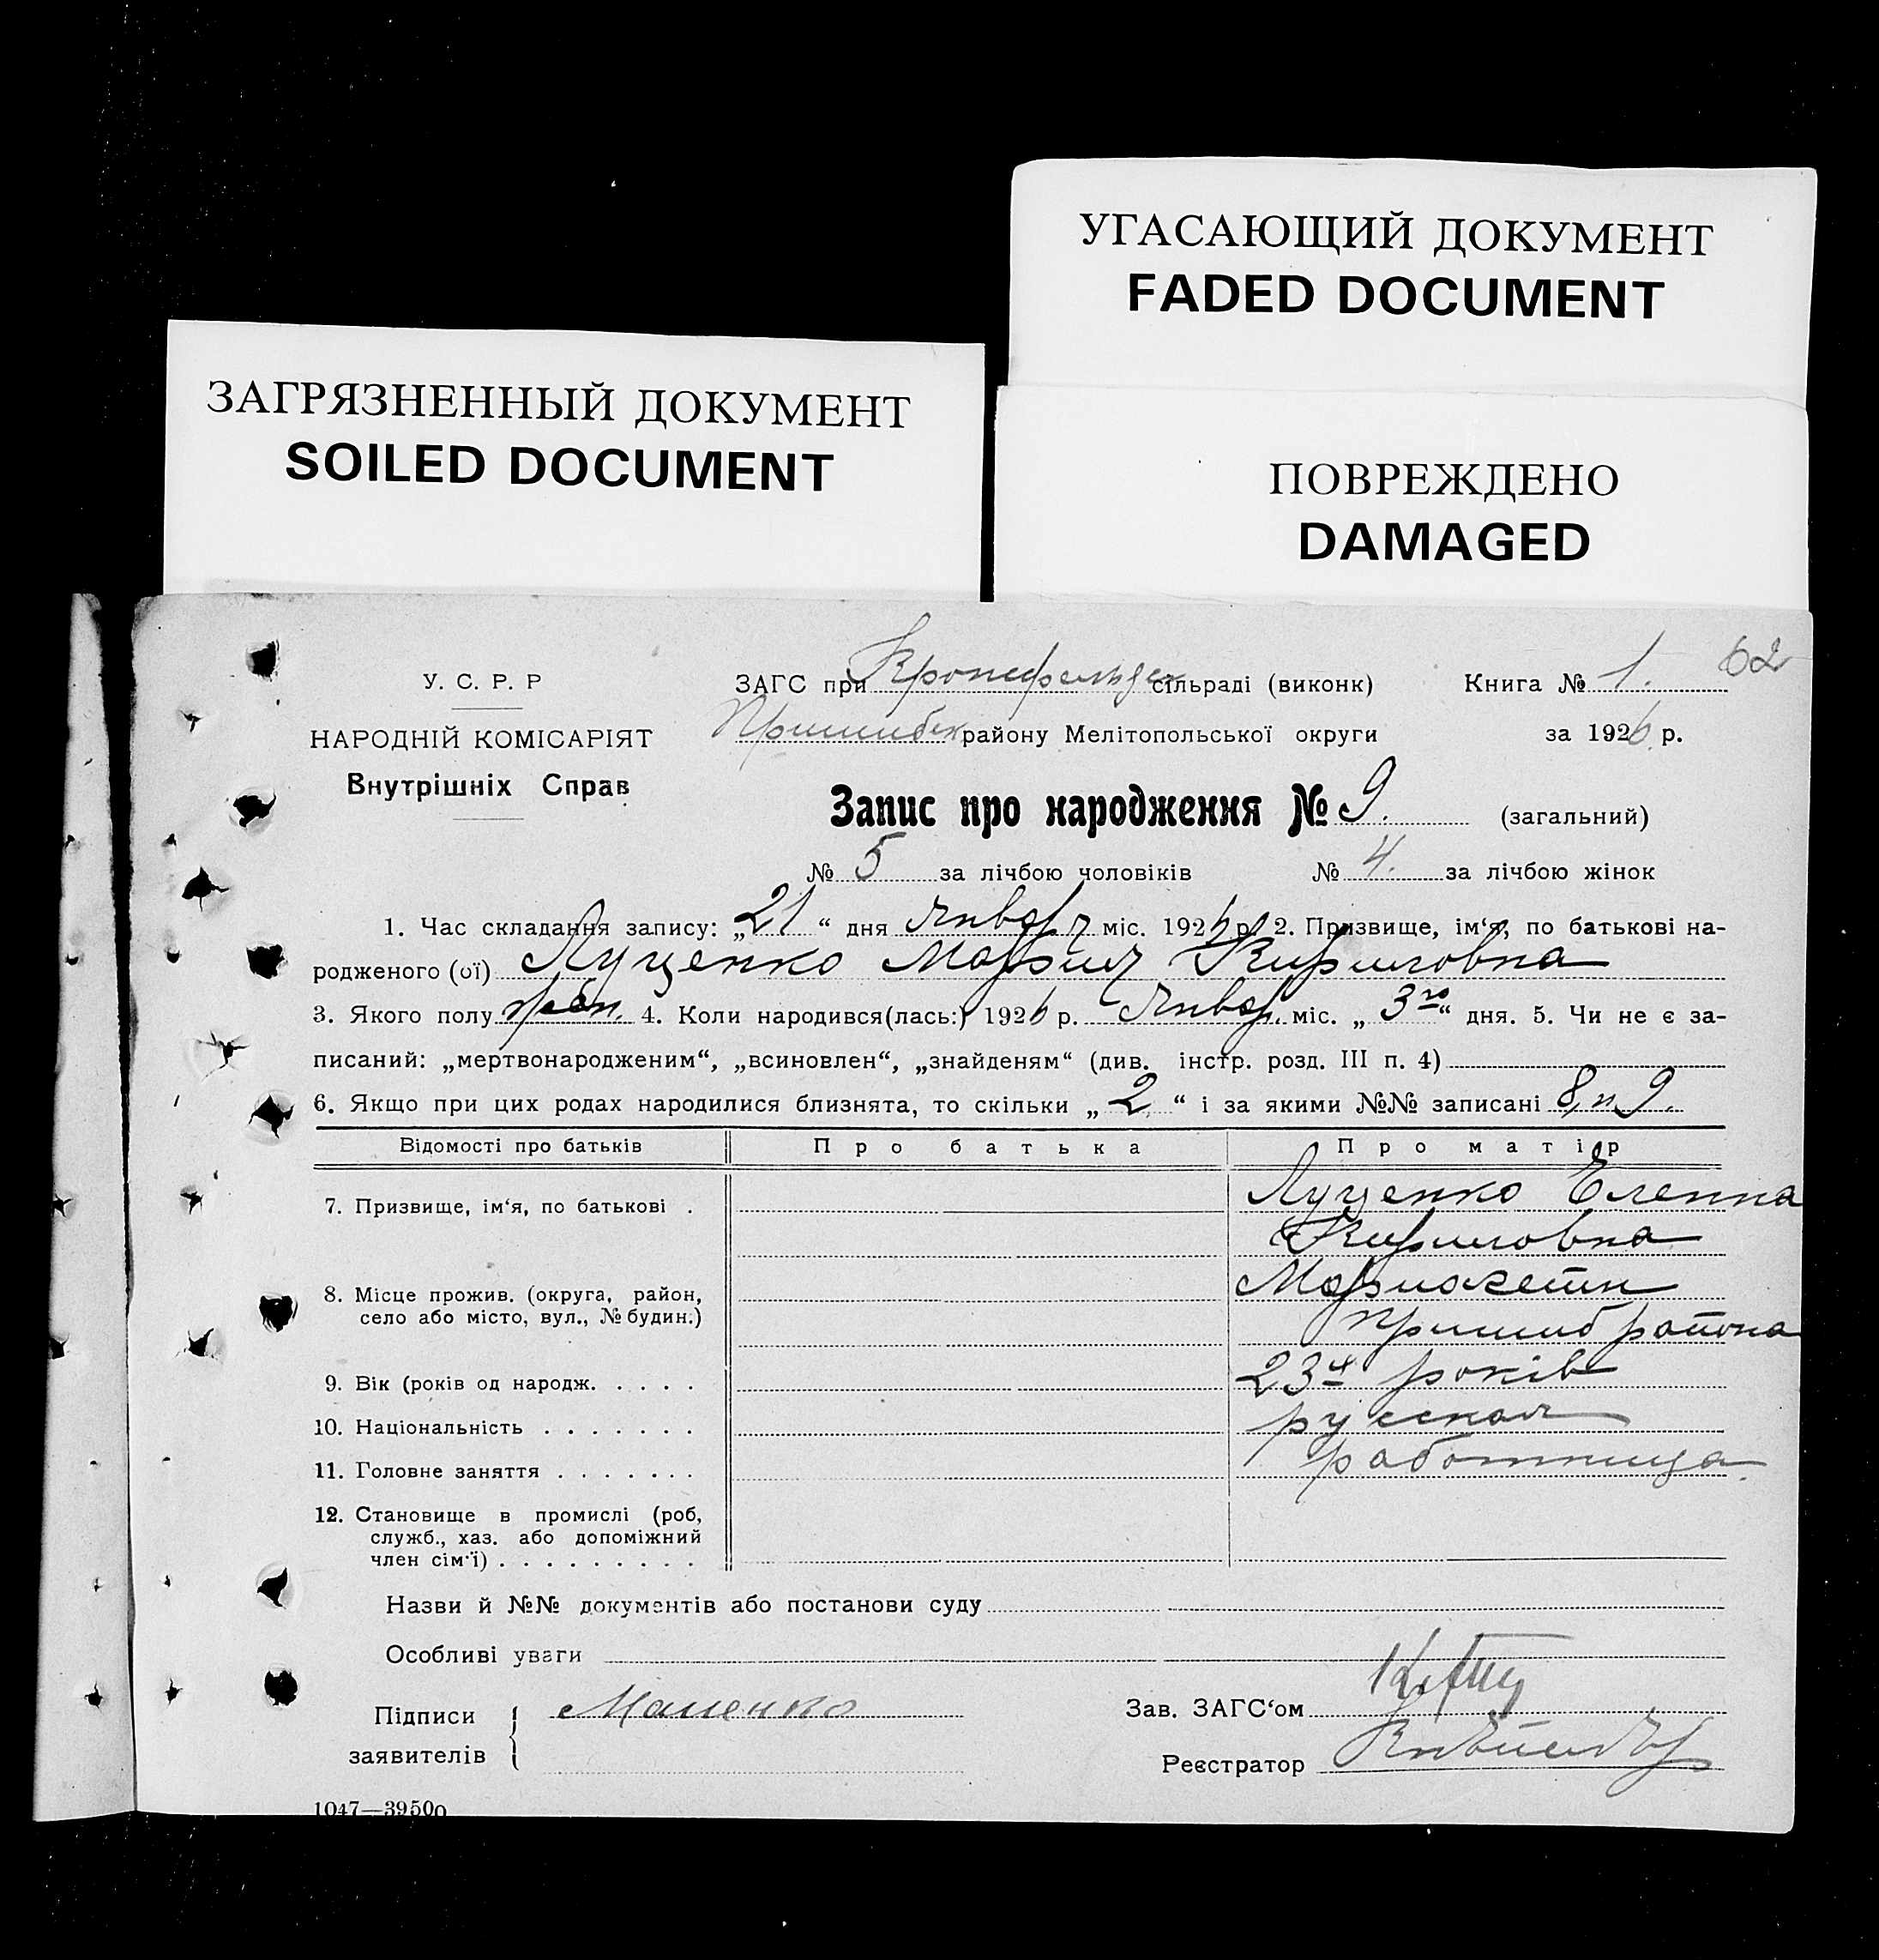 УГАСАЮЩИЙ ДОКУМЕНТ
FADED DOCUMENT
ЗАГРЯЗНЕННЫЙ ДОКУМЕНТ
SOILED DOCUMENT
ПОВРЕЖДЕНО
DAMAGED
62
У. С. Р. Р
НАРОДНІЙ КОМІСАРІЯТ
Внутрішніх Справ
ЗАГС при Кронсфельдск сільраді (виконк) Книга № 1.
Пришибск району Мелітопольської округи за 1926 р.
Запис про народження № 9. (загальний)
№ 5 за лічбою чоловіків № 4. за лічбою жінок
1. Час складання запису: „21“ дня Января міс. 1926 р. 2. Призвище, ім‘я, по батькові на-
родженого (ої) Луценко Мария Кириловна
3. Якого полу жен. 4. Коли народився(лась:) 1926 р. Январ. міс. „3го“ дня. 5. Чи не є за-
писаний: „мертвонародженим“, „всиновлен“, „знайденям“ (див. інстр. розд. III п. 4)
6. Якщо при цих родах народилися близнята, то скільки „2“ і за якими №№ записані 8, и 9.
Відомості про батьків Про батька Про матір
7. Призвище, ім‘я, по батькові . Луценко Еленна
Кириловна
8. Місце прожив. (округа, район,
село або місто, вул., № будин.)
Пришиб района
9. Вік (років од народж. . . . . 23 років
10. Національність . . . . . . . русская
11. Головне заняття . . . . . . . работница
12. Становище в промислі (роб,
служб., хаз. або допоміжний
член сім‘ї) . . . . . . . . .
Назви й №№ документів або постанови суду
Особливі уваги
Підписи
заявителів
Зав. ЗАГС‘ом
Реєстратор
1047—39500